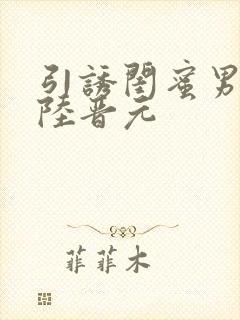 引誘閨蜜男
陸晋元
菲菲木